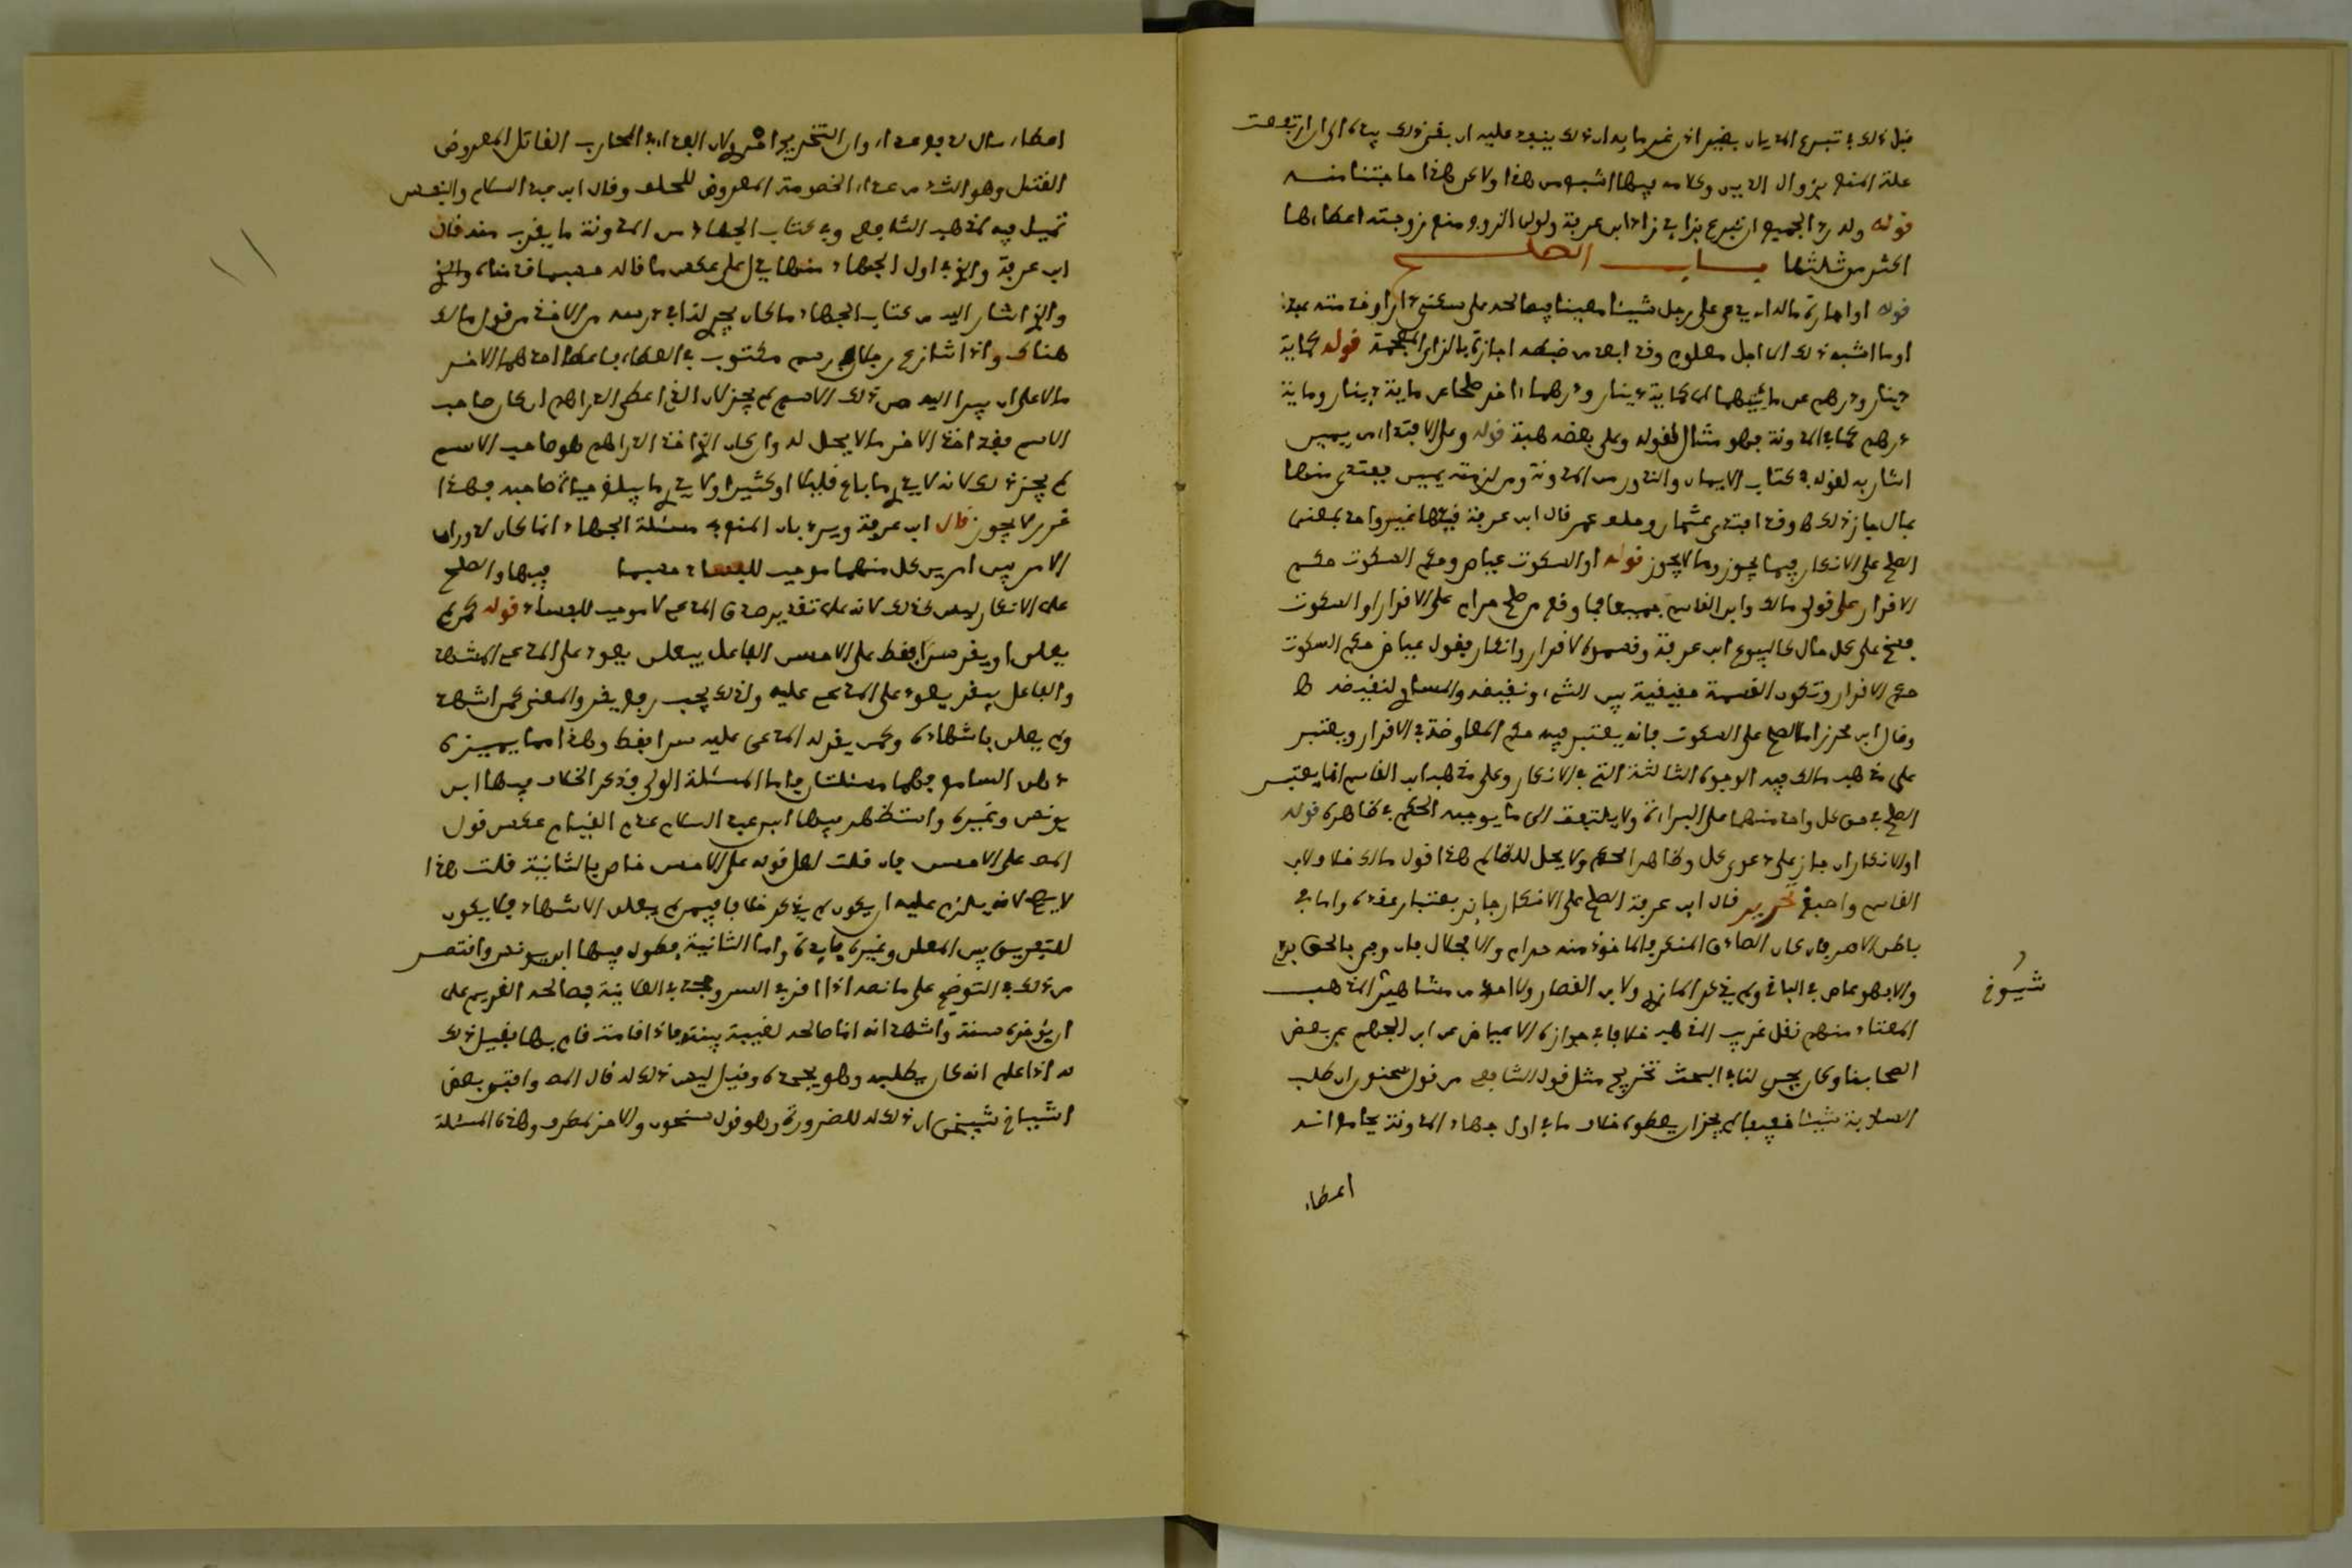 قبل ذلك في تبرع المديان بغير اذن غرمايه ان ذلك ينفذ عليه ان بقي ذلك بيده الى ان ارتفعت
علة المنع بزوال الدين وكلامه فيها اشبه من هذا ولاكن هذا ما حبسنا منه
قوله ولد رد الجميع ان تبرع بزايد زاد ابن عرفة ولولي الزوج منع زوجته اعطاءها
اكثر من ثلثها باب الصلح
قوله او اجارة مالك ان يدعي على رجل شيئا معينا فيصالحه على سكنى دار او خدمة عبد
او ما اشبه ذلك الى اجل معلوم وقد ابعد من ضبطه اجازة بالزاي المعجمة قوله كماية
دينار ودرهم عن مائتيهما اي كماية دينار ودرهما اخر صلحا عن ماية دينار وماية
درهم كما في المدونة فهو مثال لقوله وعلى بعضه هبة قوله وعلى الافتداء من يمين
اشار به لقوله في كتاب الايمان والنذور من المدونة ومن لزمته يمين فافتدى منها
بمال جاز ذلك وقد افتدى عثمان وحلف عمر قال ابن عرفة فيها غير واحد بمعنى
الصلح على الانكار فيما يجوز وما لا يجوز قوله او السكوت عياض وحكم السكوت حكم
الاقرار على قولي مالك وابن القاسم جميعا فما وقع من صلح حرام على الاقرار او السكوت
فسخ على كل حال كالبيوع ابن عرفة وقسموه لاقرار وانكار فقول عياض حكم السكوت
حكم الاقرار وتكون القسمة حقيقية بين الشيء ونقيضه والمساوي لنقيضه
وقال ابن محرز اما الصلح على السكوت فانه يعتبر فيه حكم المعاوضة في الاقرار ويعتبر
على مذهب مالك فيه الوجوه الثلاثة التي في الانكار وعلى مذهب ابن القاسم انما يعتبر
الصلح في حق كل واحد منهما على البراءة ولا يلتفت الى ما يوجبه الحكم في ظاهره قوله
او الانكار ان جاز على دعوى كل وظاهر الحكم ولا يحل للظالم هذا قول مالك خلافا لابن
القاسم واصبغ تحرير قال ابن عرفة الصلح على الانكار جائز باعتبار عقده واما في
باطن الامر فان كان الصادق المنكر فالماخوذ منه حرام والا فحلال فان وفى بالحق برئ
والا فهو غاصب في الباقي ولم يذكر المازري ولا ابن القصار ولا احد من مشاهير المذهب
المعتاد منهم نقل غريب المذهب خلافا في جوازه الا عياض عن ابن الجهم عن بعض
اصحابنا وكان يجري لنا في البحث تخريج مثل قول الشافعي من قول سحنون ان طلب
السلابة شيئا خفيفا لم يجز ان يعطوه خلاف ما في اول جهاد المدونة بجامع انه
شيوخ
اعطاء
اعطاء مال لدفع عداء وان التخريج احروي لان العداء في المحارب القاتل المعروض
القتل وهو اشد من عداء الخصومة المعروض للحلف وقال ابن عبد السلام والنفس
تميل فيه لمذهب الشافعي وفي كتاب الجهاد من المدونة ما يقرب منه قال
ابن عرفة والذي في اول الجهاد منها يدل على عكس ما قاله حسبما قدمناه والذي
والذي اشار اليه من كتاب الجهاد ما كان يجري لنا في درسه من الاخذ من قول مالك
هناك واذا تنازع رجلان في اسم مكتوب في العطاء فاعطا احدهما الاخر
مالا على ان يبرا اليه من ذلك الاسم لم يجز لان الذي اعطى الدراهم ان كان صاحب
الاسم فقد اخذ الاخر ما لا يحل له وان كان الذي اخذ الدراهم هو صاحب الاسم
لم يجز ذلك لانه لا يدري ما باع قليلا او كثيرا ولا يدري ما يبلغ حياة صاحبه فهذا
غرر لا يجوز قال ابن عرفة ويرد بان المنع في مسئلة الجهاد انما كان لدوران
الامر بين امرين كل منهما موجب للفساد حسبما فيها والصلح
على الانكار ليس كذلك لانه على تقدير صدق المدعي لا موجب للفساد قوله كمن لم
يعلن او يقر سرا فقط على الاحسن الفاعل بيعلن يعود على المدعي المشهد
والفاعل بيقر يعود على المدعى عليه ولذلك يجب رفع يقر والمعنى كمن اشهد
ولم يعلن باشهاده وكمن يقر له المدعى عليه سرا فقط وهذا مما يميزه
ذهن السامع فهما مسئلتان فاما المسئلة الاولى فذكر الخلاف فيها ابن
يونس وغيره واستظهر فيها ابن عبد السلام عدم القيام عكس قول
المص على الاحسن فان قلت لعل قوله على الاحسن خاص بالثانية قلت هذا
لا يصح لانه يلزم عليه ان يكون لم يذكر خلافا فيمن لم يعلن الاشهاد فلا يكون
لتفريق بين المعلن وغيره فايدة واما الثانية فطول فيها ابن يونس واقتصر
من ذلك في التوضيح على ما نصه اذا اقر في السر وجحد في العلانية فصالحه الغريم على
ان يؤخره سنة واشهد انه انما صالحه لغيبة بينته فاذا قدمت قام بها فقيل ذلك
له اذا علم انه كان يطلبه وهو يجحده وقيل ليس ذلك له قال المص وافتى بعض
اشياخ شيخي ان ذلك له للضرورة وهو قول سحنون والاخر لمطرف وهذه المسئلة